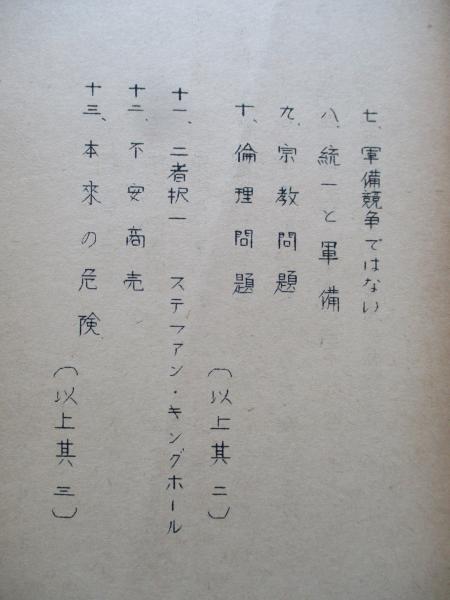 七、軍備競争ではない
八、統一と軍備
九、宗教問題
十、倫理問題
（以上其二）
十一、二者択一　ステファン・キングホール
十二、不安商売
十三、本来の危険
（以上其三）